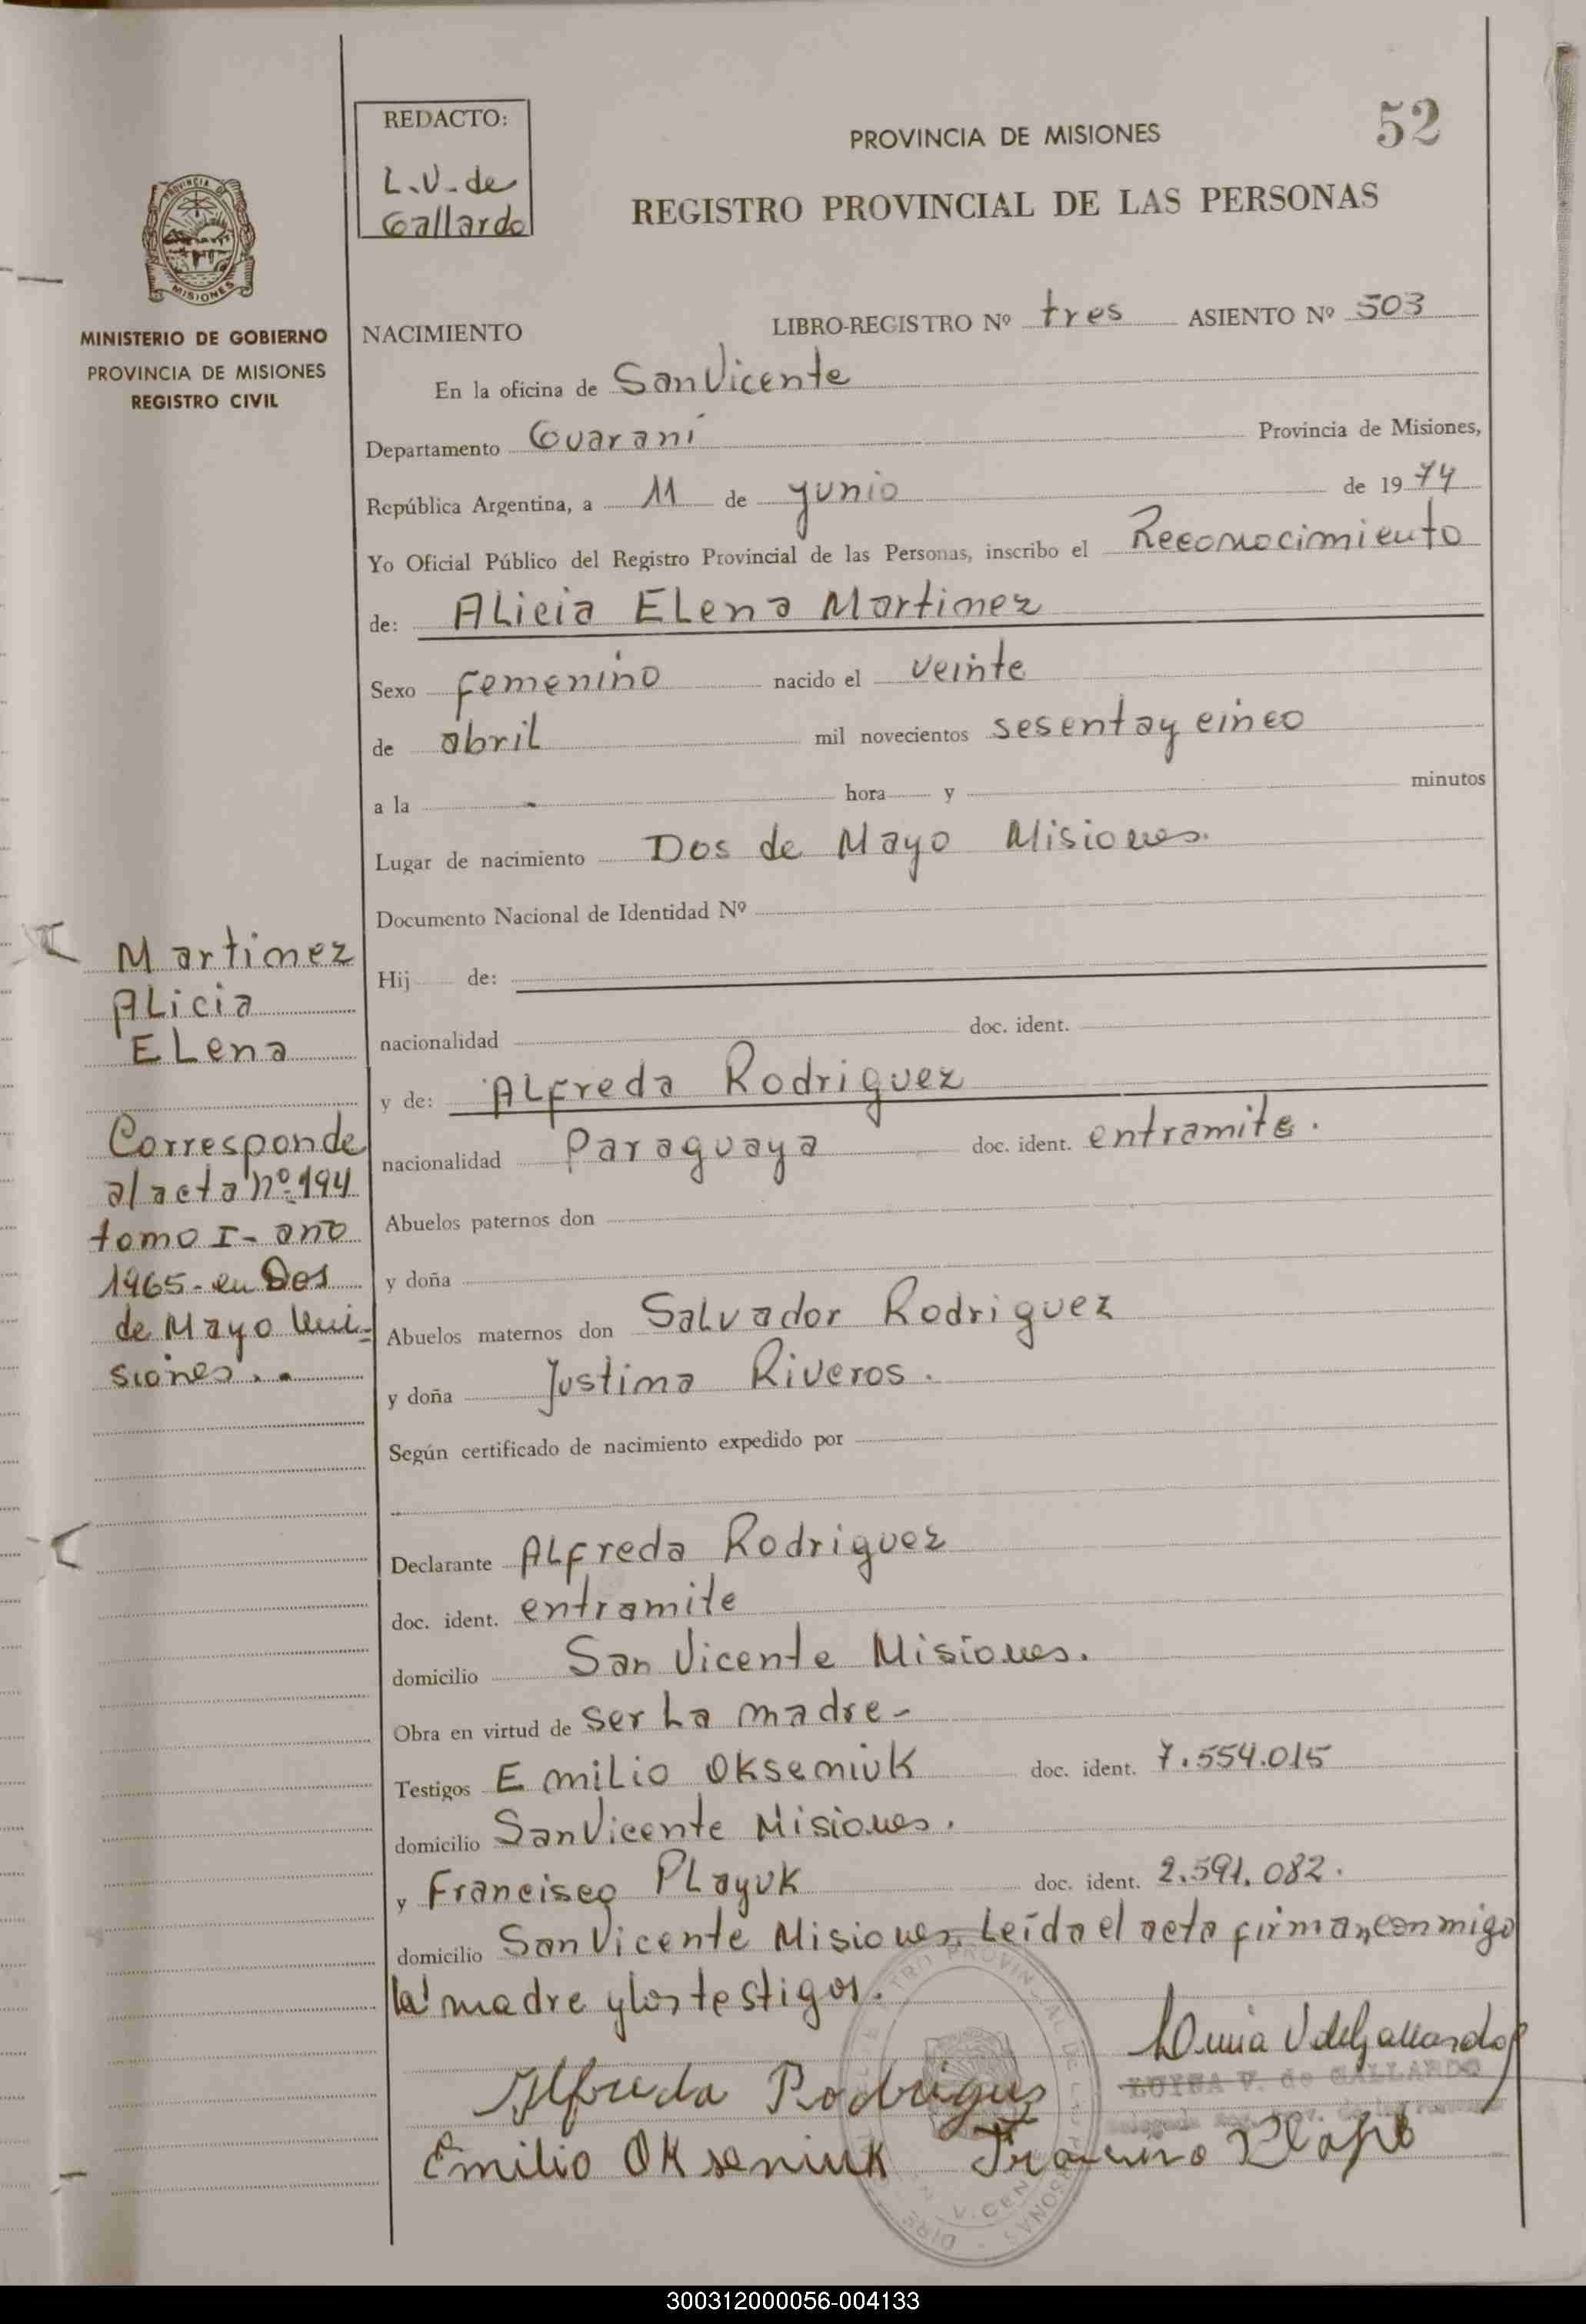 52
REDACTO:
L.V. de
Gallardo
PROVINCIA DE MISIONES
REGISTRO PROVINCIAL DE LAS PERSONAS
PROVINCIA DE
MISIONES
MINISTERIO DE GOBIERNO
PROVINCIA DE MISIONES
REGISTRO CIVIL
NACIMIENTO LIBRO-REGISTRO Nº tres ASIENTO Nº 503
En la oficina de San Vicente
Departamento Guaraní Provincia de Misiones,
República Argentina, a 11 de junio de 1974
Yo Oficial Público del Registro Provincial de las Personas, inscribo el Reconocimiento
de: Alicia Elena Martinez
Sexo femenino nacido el veinte
de abril mil novecientos sesenta y cinco
a la - hora y minutos
Lugar de nacimiento Dos de Mayo Misiones.
Documento Nacional de Identidad Nº
Hij de:
nacionalidad doc. ident.
y de: Alfreda Rodriguez
nacionalidad Paraguaya doc. ident. entramite.
Abuelos paternos don
y doña
Abuelos maternos don Salvador Rodriguez
y doña Justina Riveros.
Según certificado de nacimiento expedido por
Declarante Alfreda Rodriguez
doc. ident. entramite
domicilio San Vicente Misiones.
Obra en virtud de ser La madre-
Testigos Emilio Okseniuk doc. ident. 7.554.015
domicilio San Vicente Misiones.
y Francisco Playuk doc. ident. 2.591.082.
domicilio San Vicente Misiones. Leída el acta firman conmigo
la madre y los testigos.
Martinez
Alicia
Elena
Corresponde
al acta nº 194
tomo I- año
1965- en Dos
de Mayo Mi-
siones..
V de Gallardo
LUISA V. de GALLARDO
Alfreda Rodrigues
Emilio Okseniuk
300312000056-004133